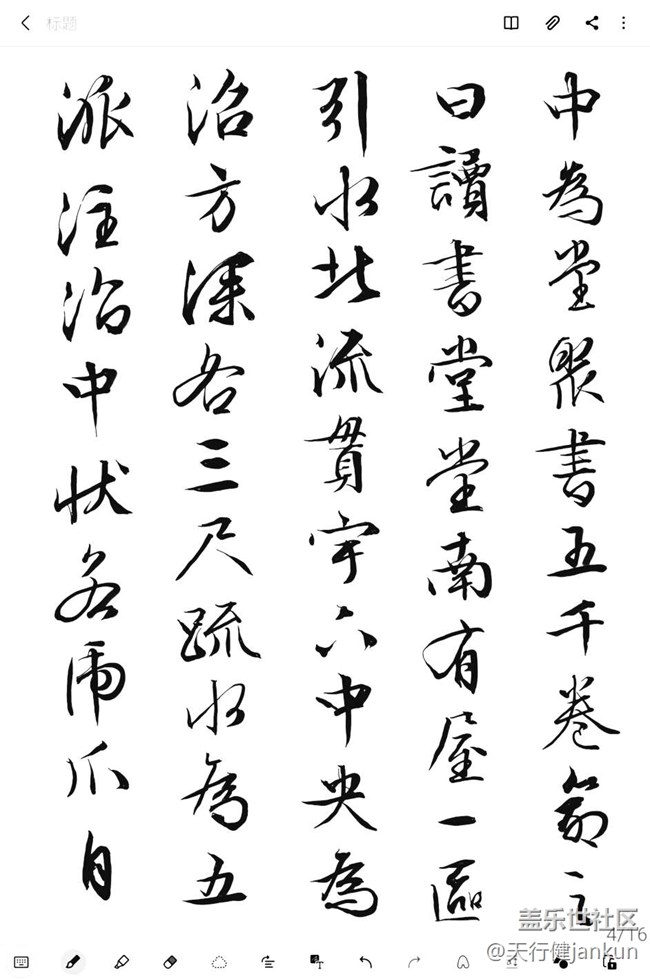 标题
中為堂聚書五千卷命之
曰讀書堂堂南有屋一區
引水北流貫宇下中央為
沼方深各三尺疏水為五
派注沼中状若虎爪自
4/16
盖乐世社区
@天行健jankun